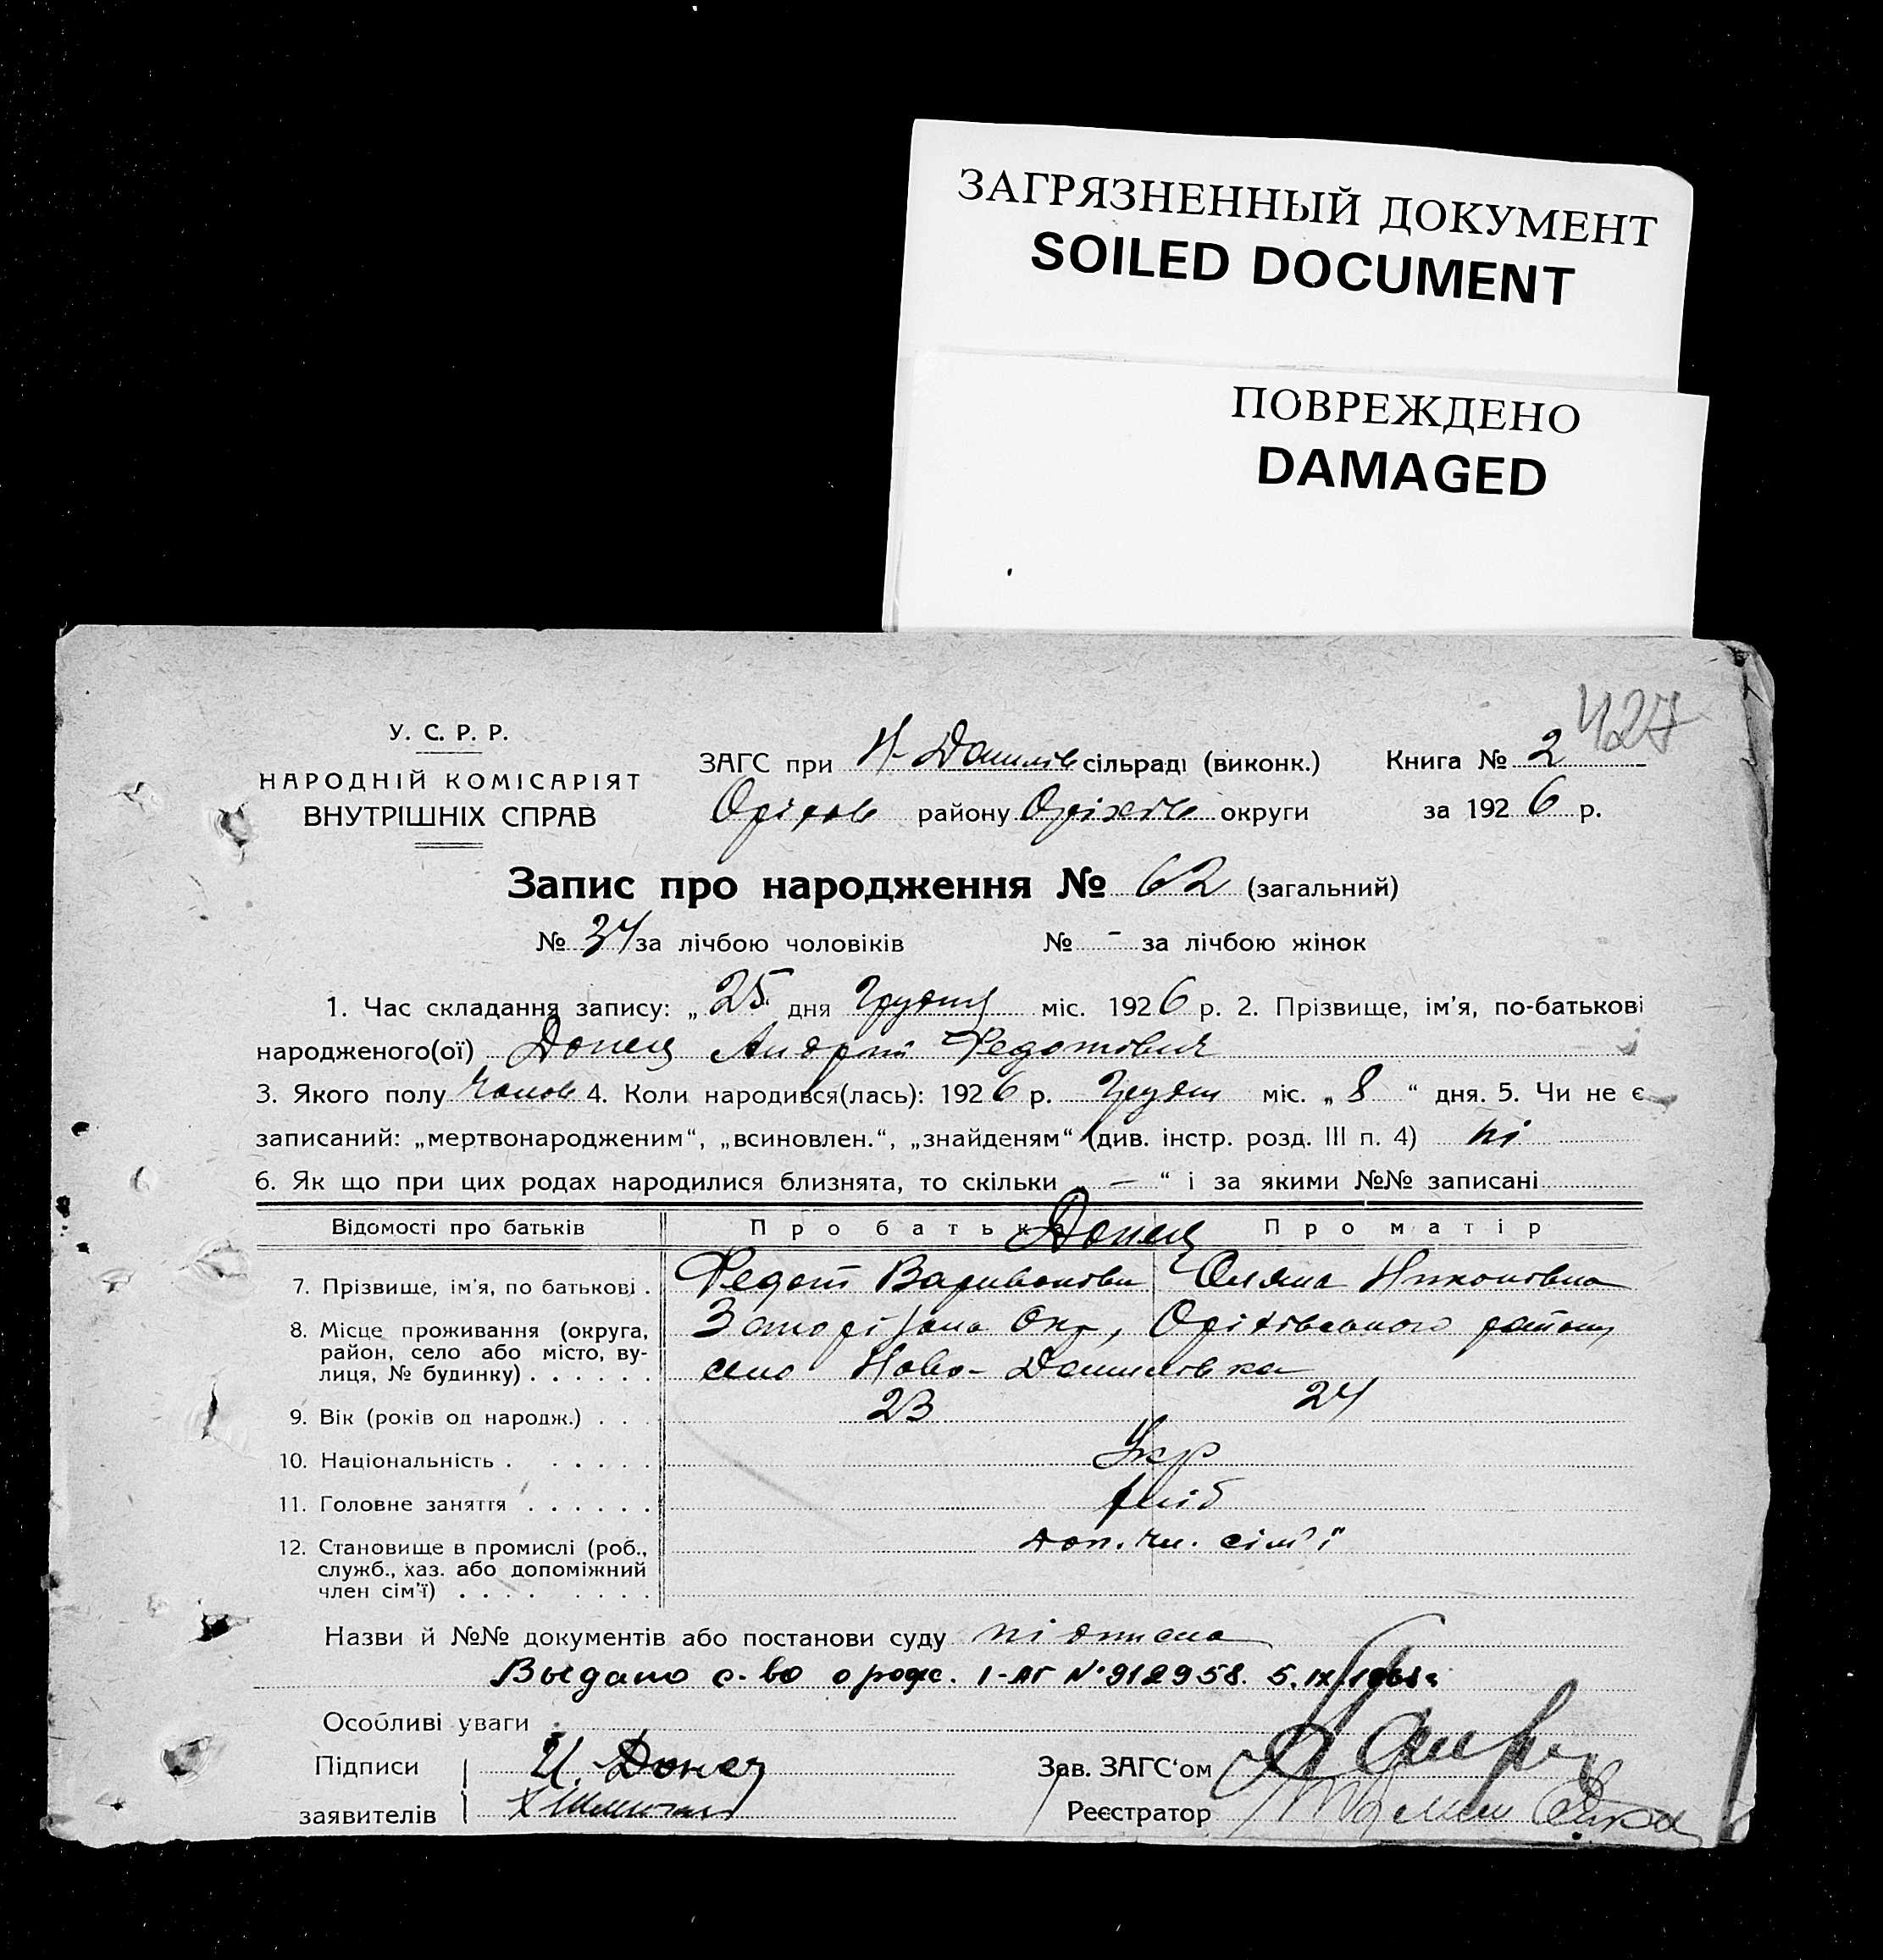 ЗАГРЯЗНЕННЫЙ ДОКУМЕНТ
SOILED DOCUMENT
ПОВРЕЖДЕНО
DAMAGED
427
У. С. Р. Р.
НАРОДНІЙ КОМІСАРІЯТ
ВНУТРІШНІХ СПРАВ
ЗАГС при Н-Данилів сільраді (виконк.) Книга № 2
Оріхів району Оріхів округи за 1926 р.
Запис про народження № 62 (загальний)
№ 34 за лічбою чоловіків № - за лічбою жінок
1. Час складання запису: „25“ дня Грудня міс. 1926 р. 2. Прізвище, ім'я, по-батькові
народженого(ої) Донец Андрій Федотович
3. Якого полу Чолов 4. Коли народився(лась): 1926 р. Грудня міс. „8“ дня. 5. Чи не є
записаний: „мертвонародженим“, „всиновлен.“, „знайденям“ (див. інстр. розд. III п. 4) ні
6. Як що при цих родах народилися близнята, то скільки „—“ і за якими №№ записані
Відомості про батьків Про батька Про матір
Донец
7. Прізвище, ім'я, по батькові . Федот Варивонови Оляна Никонівна
8. Місце проживання (округа, район, село або місто, вулиця, № будинку) . . . . . . Запоріжжа Окр, Оріхівського району
село Ново-Данилівка
9. Вік (років од народж.) . . . 23 24
10. Національність . . . . . . Укр
11. Головне заняття . . . . . . хліб
12. Становище в промислі (роб., служб., хаз. або допоміжний член сім'ї) . . . . . . . . доп. чл. сім'ї
Назви й №№ документів або постанови суду підписка
Выдано с-во о рожд. I-АГ №912958. 5.IX.
Особливі уваги
Підписи И. Донец Зав. ЗАГС'ом
заявителів Реєстратор